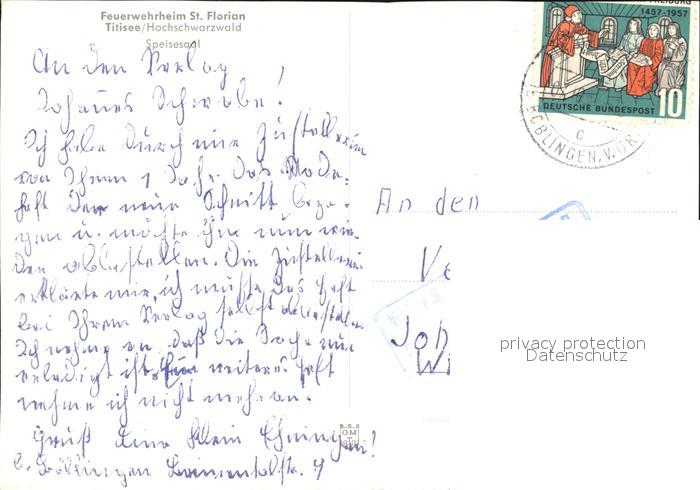 Feuerwehrheim St. Florian
Titisee/Hochschwarzwald
Speisesaal
An den Verlag
Johannes Schwabe!
Ich habe durch eine Zustellerin
von Ihnen 1 Jahr das Mode-
heft der neue Schnitt bezo-
gen u. möchte ihn nun wie-
der abbestellen. Die Zustellerin
erklärte mir, ich müsste das Heft
bei Ihrem Verlag selbst abbestellen
Ich nehme an, daß die Sache nun
erledigt ist. Ein weiteres Heft
nehme ich nicht mehr an.
Gruß Lina Klein Ehningen!
b. Böblingen
1457-1957
DEUTSCHE BUNDESPOST
10
BÖBLINGEN
c
An den
Ve
Joh
privacy protection
Datenschutz